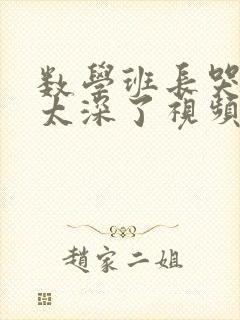 数學班長哭
太深了視頻
趙家二姐